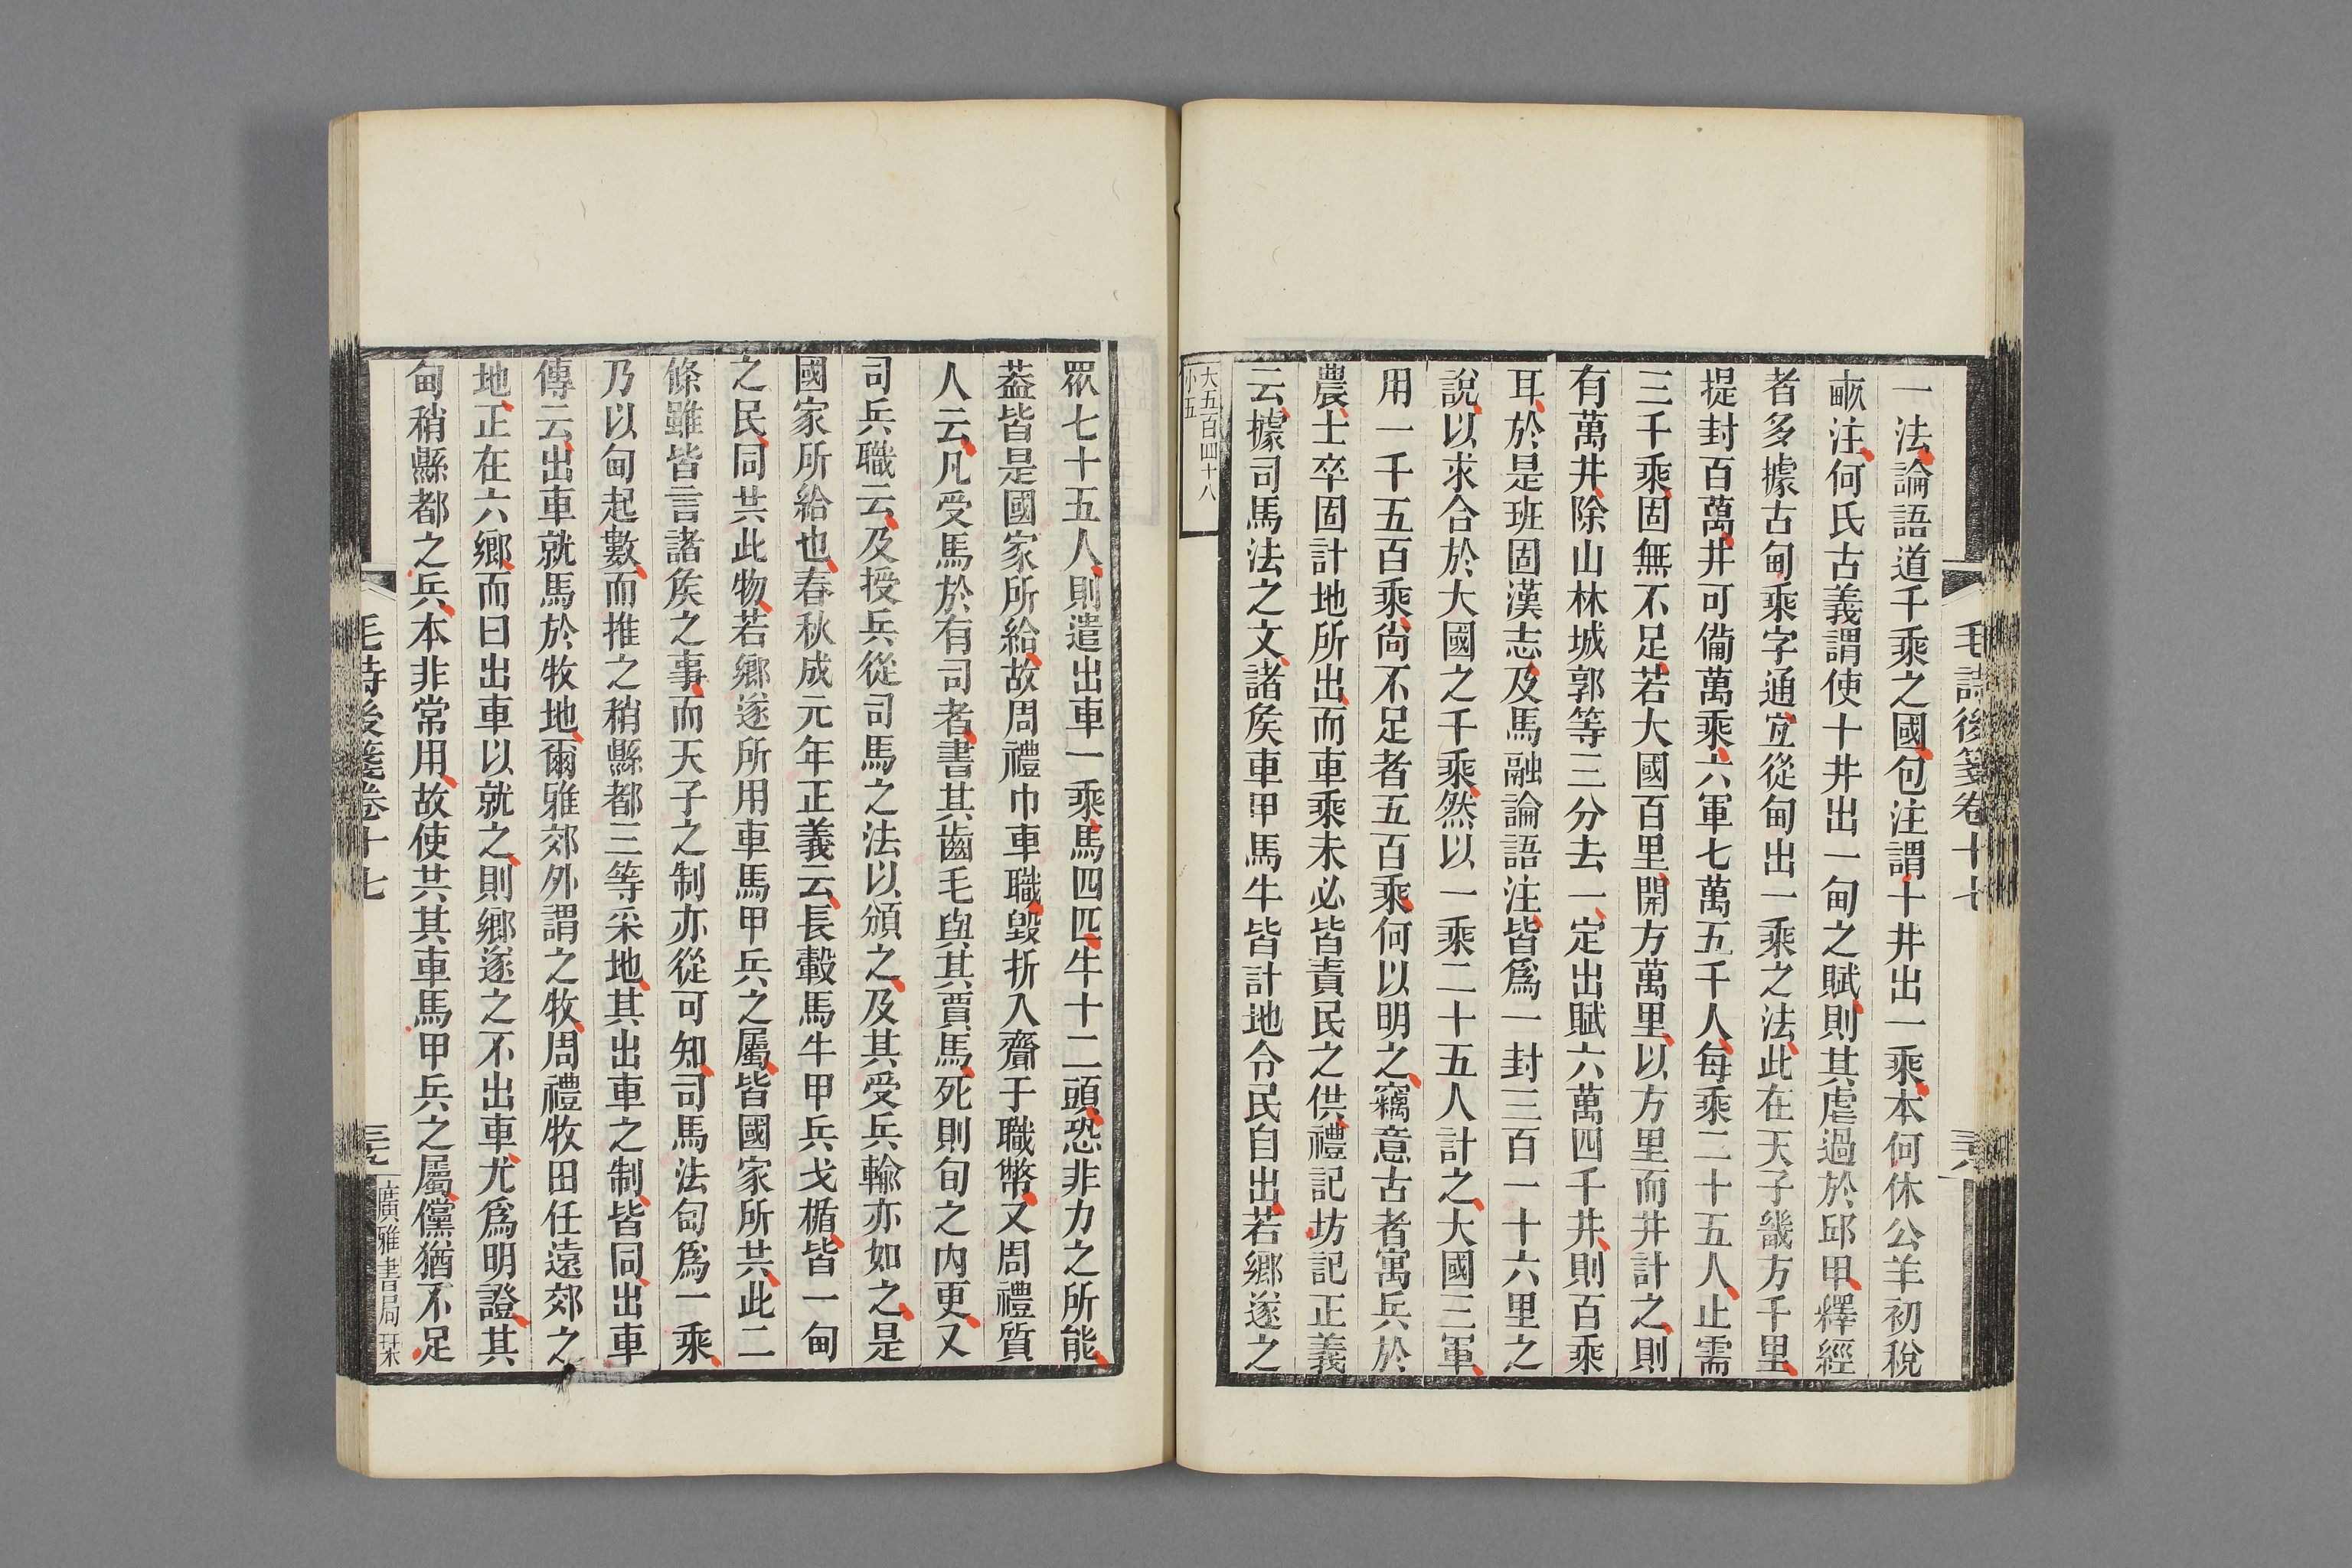 毛詩後箋卷十七
三六
一法論語道千乘之國包注謂十井出一乘本何休公羊初稅
畝注何氏古義謂使十井出一甸之賦則其虐過於邱甲釋經
者多據古甸乘字通宜從甸出一乘之法此在天子畿方千里
提封百萬井可備萬乘六軍七萬五千人每乘二十五人止需
三千乘固無不足若大國百里開方萬里以方里而井計之則
有萬井除山林城郭等三分去一定出賦六萬四千井則百乘
耳於是班固漢志及馬融論語注皆爲一封三百一十六里之
說以求合於大國之千乘然以一乘二十五人計之大國三軍
用一千五百乘尙不足者五百乘何以明之竊意古者寓兵於
農士卒固計地所出而車乘未必皆責民之供禮記坊記正義
云據司馬法之文諸矦車甲馬牛皆計地令民自出若鄉遂之
大五百四十八
小五
眾七十五人則遣出車一乘馬四匹牛十二頭恐非力之所能
葢皆是國家所給故周禮巾車職毀折入齎于職幣又周禮質
人云凡受馬於有司者書其齒毛與其賈馬死則旬之內更又
司兵職云及授兵從司馬之法以頒之及其受兵輸亦如之是
國家所給也春秋成元年正義云長轂馬牛甲兵戈楯皆一甸
之民同共此物若鄉遂所用車馬甲兵之屬皆國家所共此二
條雖皆言諸矦之事而天子之制亦從可知司馬法甸爲一乘
乃以甸起數而推之稍縣都三等采地其出車之制皆同出車
傳云出車就馬於牧地爾雅郊外謂之牧周禮牧田任遠郊之
地正在六鄉而曰出車以就之則鄉遂之不出車尤爲明證其
甸稍縣都之兵本非常用故使共其車馬甲兵之屬儻猶不足
毛詩後箋卷十七
三七
廣雅書局栞